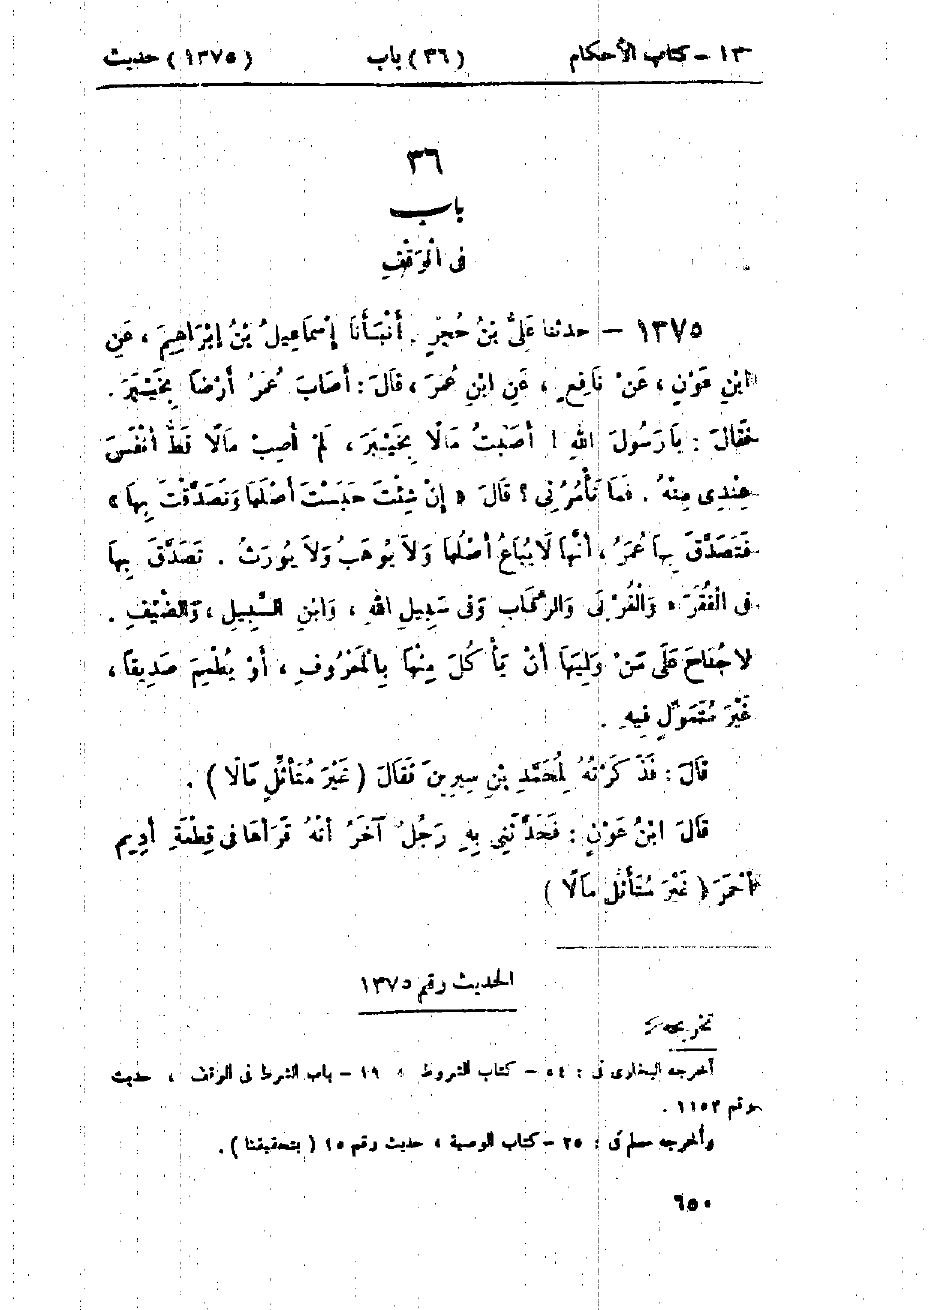 ١٣ - كتاب الأحكام (٣٦) باب (١٣٧٥) حديث
٣٦
باب
فى الْوَقْفِ
١٣٧٥ – حدثنا عَلِىُّ بْنُ حُجْرٍ . أَنْبَأَنَا إِسْمَاعِيلُ بْنُ إِبْرَاهِيمَ ، عَنِ
ابْنِ عَوْنٍ ، عَنْ نَافِعٍ ، عَنِ ابْنِ عُمَرَ ، قَالَ : أَصَابَ عُمَرُ أَرْضًا بِخَيْبَرَ .
فَقَالَ : يَا رَسُولَ اللهِ ! أَصَبْتُ مَالًا بِخَيْبَرَ ، لَمْ أُصِبْ مَالًا قَطُّ أَنْفَسَ
عِنْدِى مِنْهُ . فَمَا تَأْمُرُنِى ؟ قَالَ « إِنْ شِئْتَ حَبَسْتَ أَصْلَهَا وَتَصَدَّقْتَ بِهَا »
فَتَصَدَّقَ بِهَا عُمَرُ ، أَنَّهَا لَا يُبَاعُ أَصْلُهَا وَلَا يُوهَبُ وَلَا يُورَثُ . تَصَدَّقَ بِهَا
فى الْفُقَرَاءِ وَالْقُرْبَى وَالرِّقَابِ وَفى سَبِيلِ اللهِ ، وَابْنِ السَّبِيلِ ، وَالضَّيْفِ .
لَا جُنَاحَ عَلَى مَنْ وَلِيَهَا أَنْ يَأْكُلَ مِنْهَا بِالْمَعْرُوفِ ، أَوْ يُطْعِمَ صَدِيقًا ،
غَيْرَ مُتَمَوِّلٍ فِيهِ .
قَالَ : فَذَكَرْتُهُ لِمُحَمَّدِ بْنِ سِيرِينَ فَقَالَ ( غَيْرَ مُتَأَثِّلٍ مَالًا ) .
قَالَ ابْنُ عَوْنٍ : فَحَدَّثَنِى بِهِ رَجُلٌ آخَرُ أَنَّهُ قَرَأَهَا فى قِطْعَةِ أَدِيمٍ
أَحْمَرَ ( غَيْرَ مُتَأَثِّلٍ مَالًا )
الحديث رقم ١٣٧٥
تخريجه
أخرجه البخارى فى : ٥٤ - كتاب الشروط ، ١٩ - باب الشرط فى الوقف ، حديث
رقم ١١٥٣ .
وأخرجه مسلم فى : ٢٥ - كتاب الوصية ، حديث رقم ١٥ ( بتحقيقنا ) .
٦٥٠